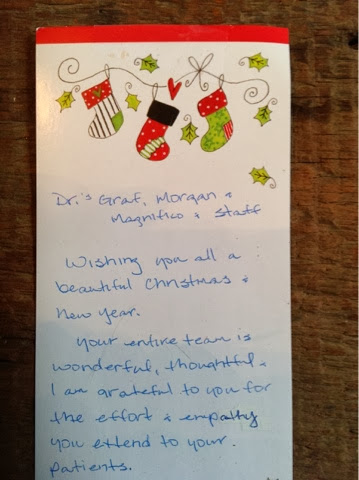 Dr.'s Graf, Morgan &
Magnifico & Staff
Wishing you all a
beautiful Christmas &
New Year.
Your entire team is
wonderful, thoughtful &
I am grateful to you for
the effort & empathy
you extend to your
patients.